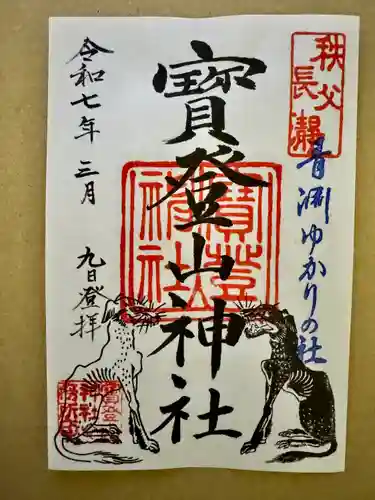 秩父
長瀞
青淵ゆかりの社
寳登山神社
寳登
山神
社
令和七年三月
九日登拝
寳登山
神社社
務所印